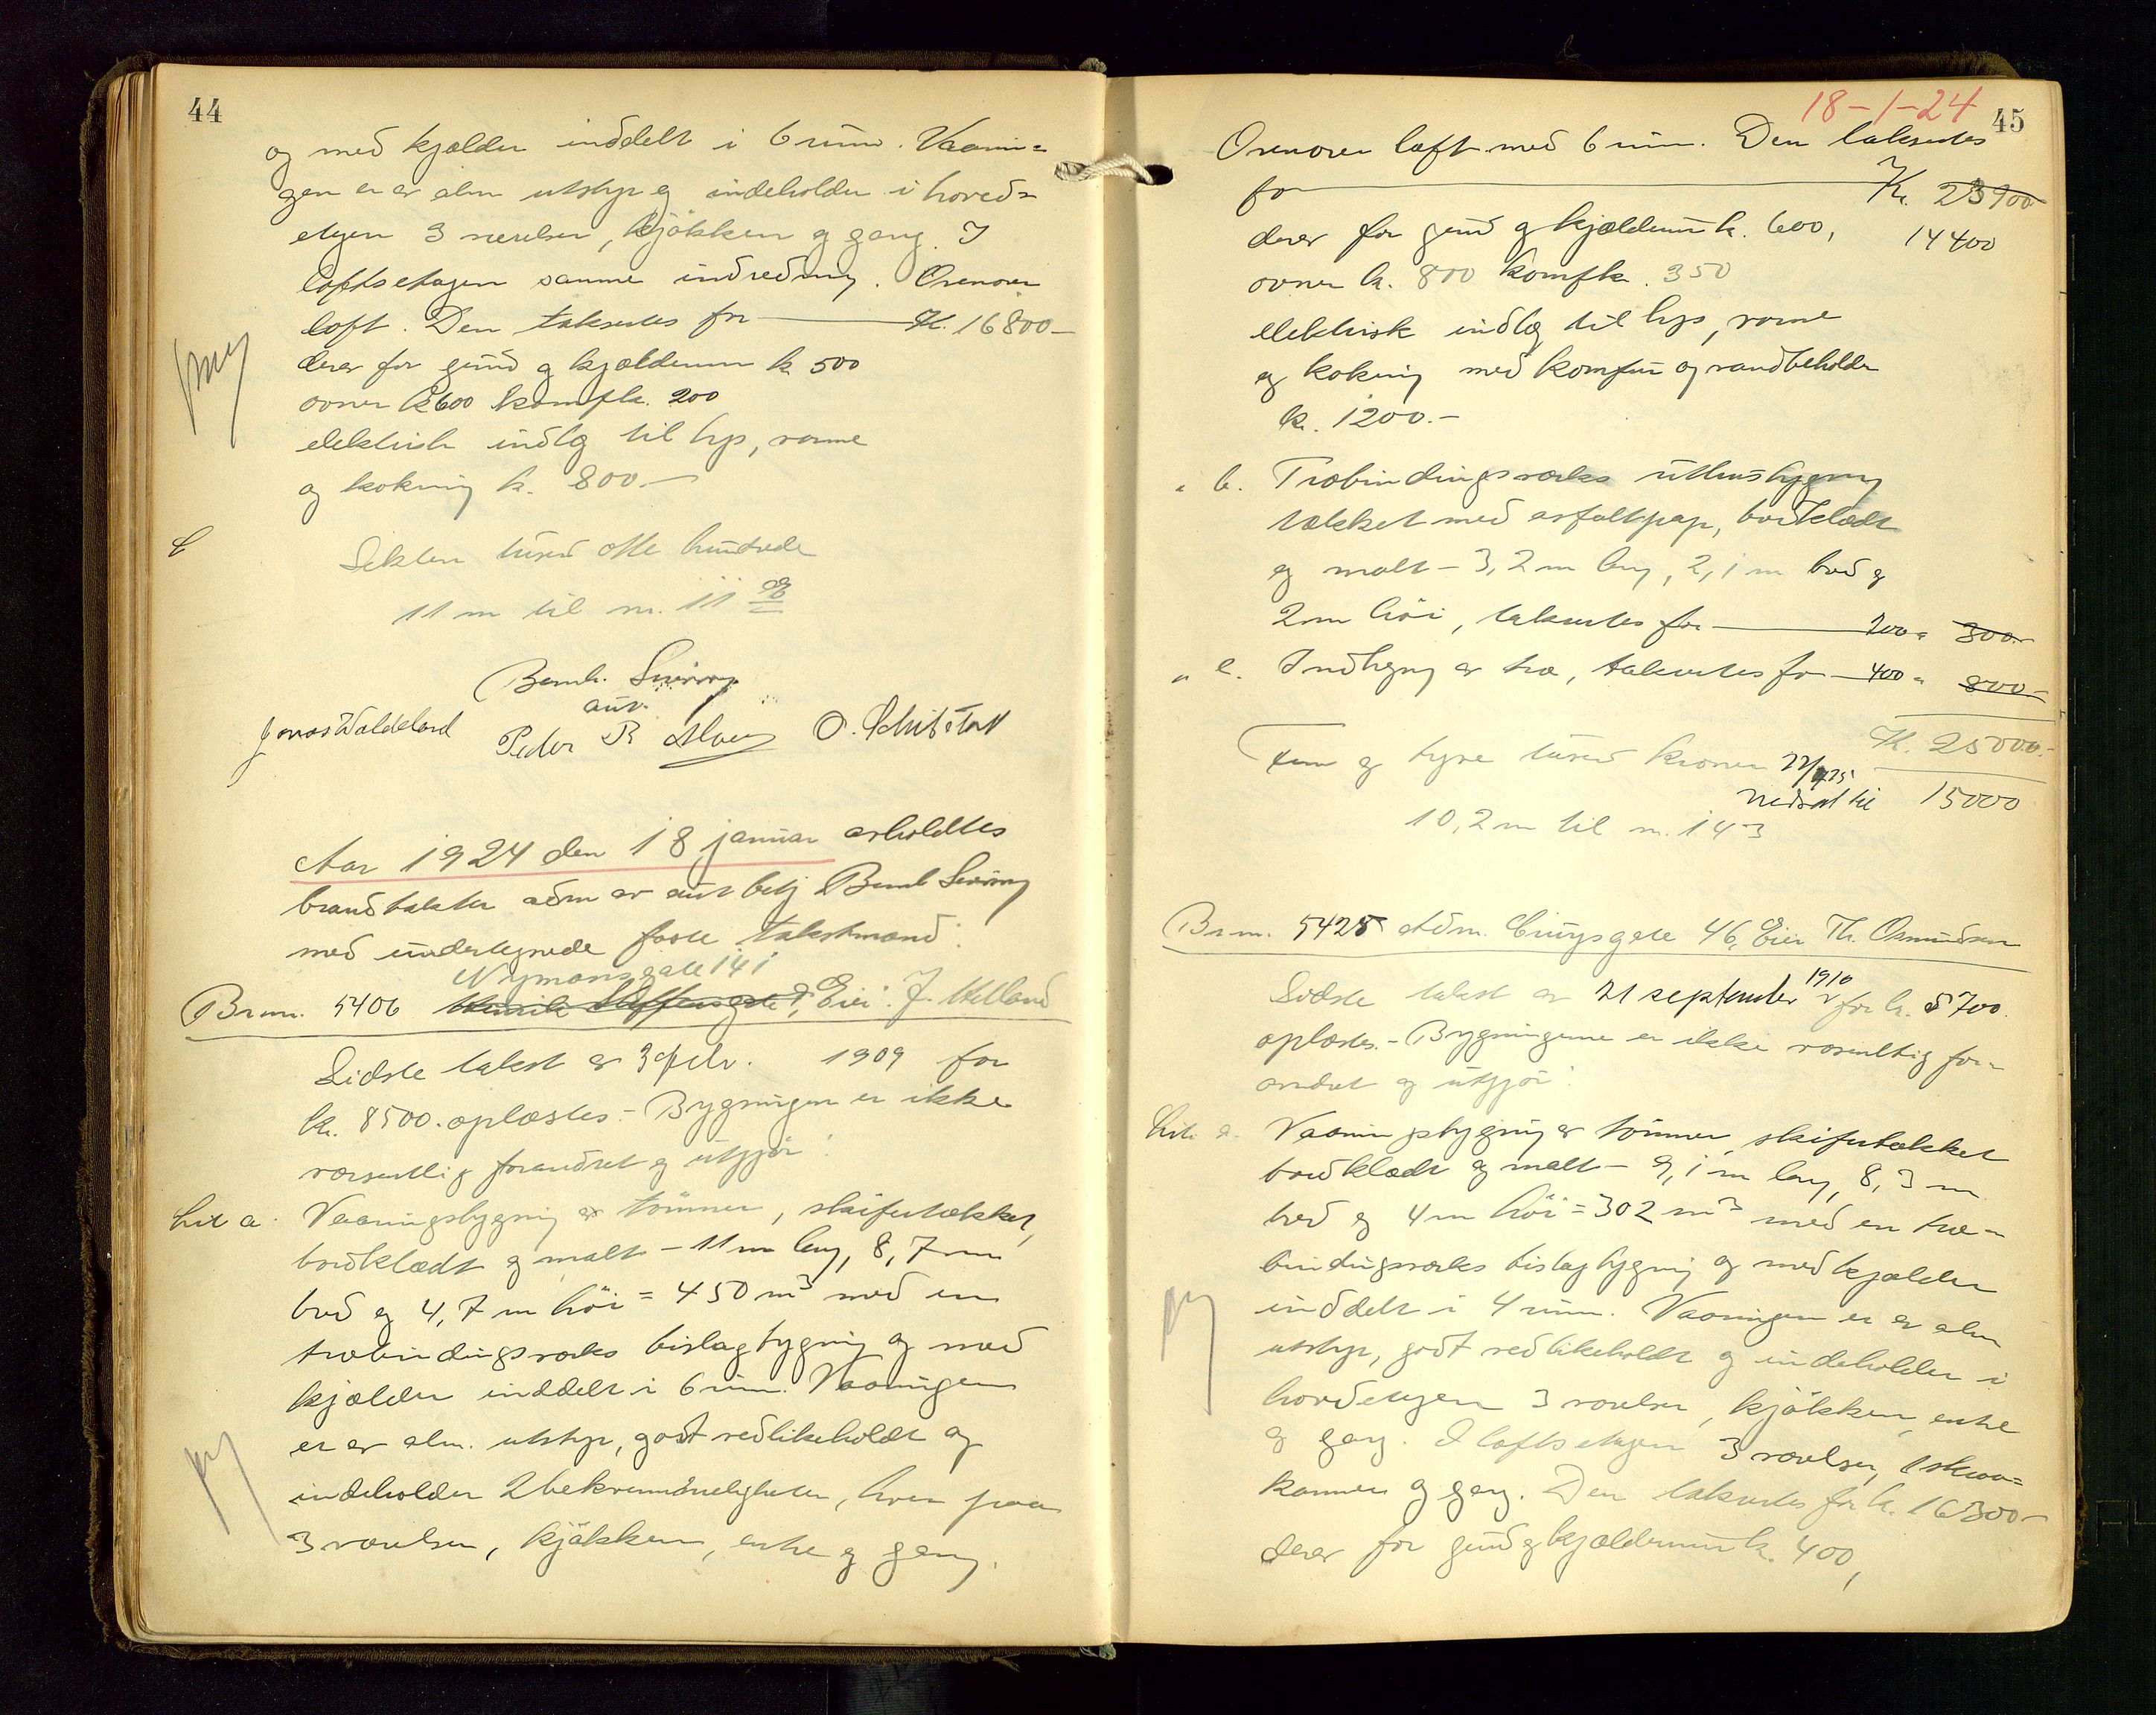 44
og med kjælder inddelt i 6 rum. Vaanin=
gen er av alm utstyr og indeholder i hoved=
etagen 3 værelser, kjøkken og gang. I
loftsetagen samme indredning. Ovenover
loft. Den takseres for Kr. 16800-
derav for grund og kjældermur kr 500
ovner kr 600 komf kr. 200
elektrisk indlæg til lys, varme
og kokning kr. 800-
Seksten tusen otte hundrede
11 m til nr. 111
Bernh. Sværing
aut.
Jonas Waldeland Peder R Alvær O. Schibstad
Aar 1924 den 18 januar avholdtes
brandtakster adm av aut betj Bernh Sværing
med undertegnede faste takstmænd:
Nymansgate 141
Br nr. 5406 Henrik Steffensgate Eier: J. Helland
Sidste takst av 3 febr. 1909 for
kr. 8500. oplæstes. - Bygningen er ikke
væsentlig forandret og utgjør:
Lit a. Vaaningsbygning av tømmer, skifertækket,
bordklædt og malt - 11 m lang, 8,7 m
bred og 4,7 m høi = 450 m3 med en
træbindingsverks bislagbygning og med
kjælder inddelt i 6 rum. Vaaningen
er av alm. utstyr, godt vedlikeholdt og
indeholder 2 bekvemmeligheter, hver paa
3 værelser, kjøkken, entre og gang.
18-1-24
45
Ovenover loft med 6 rum. Den takseres
for Kr. 23900
derav for grund og kjældermur kr. 600, 14400
ovner kr. 800 komf kr. 350
elektrisk indlæg til lys, varme
og kokning med komfur og vandbeholder
kr. 1200.-
" b. Træbindingsverks uthusbygning
tækket med asfaltpap, bordklædt
og malt - 3,2 m lang, 2,1 m bred og
2 m høi, takseres for 200 " 300.-
" c. Indhegning av træ, takseres for 400 " 800.-
Kr. 25000.-
Fem og tyve tusen kroner 22/4 25
nedsat til 15000
10,2 m til nr. 143
Br nr. 5425 Adm. Erlingsgate 46, Eier Th. Osmundsen
Sidste takst av 21 september 1910 for kr. 8700.
oplæstes. - Bygningerne er ikke væsentlig for=
andret og utgjør:
Lit. a. Vaaningsbygning av tømmer, skifertækket
bordklædt og malt - 9,1 m lang, 8,3 m
bred og 4 m høi = 302 m3 med en træ=
bindingsverks bislagbygning og med kjælder
inddelt i 4 rum. Vaaningen er av alm
utstyr, godt vedlikeholdt og indeholder i
hovedetagen 3 værelser, kjøkken, entre
og gang. I loftsetagen 3 værelser, 1 skraa=
kammer og gang. Den takseres for kr. 16300-
derav for grund og kjældermur kr. 400,